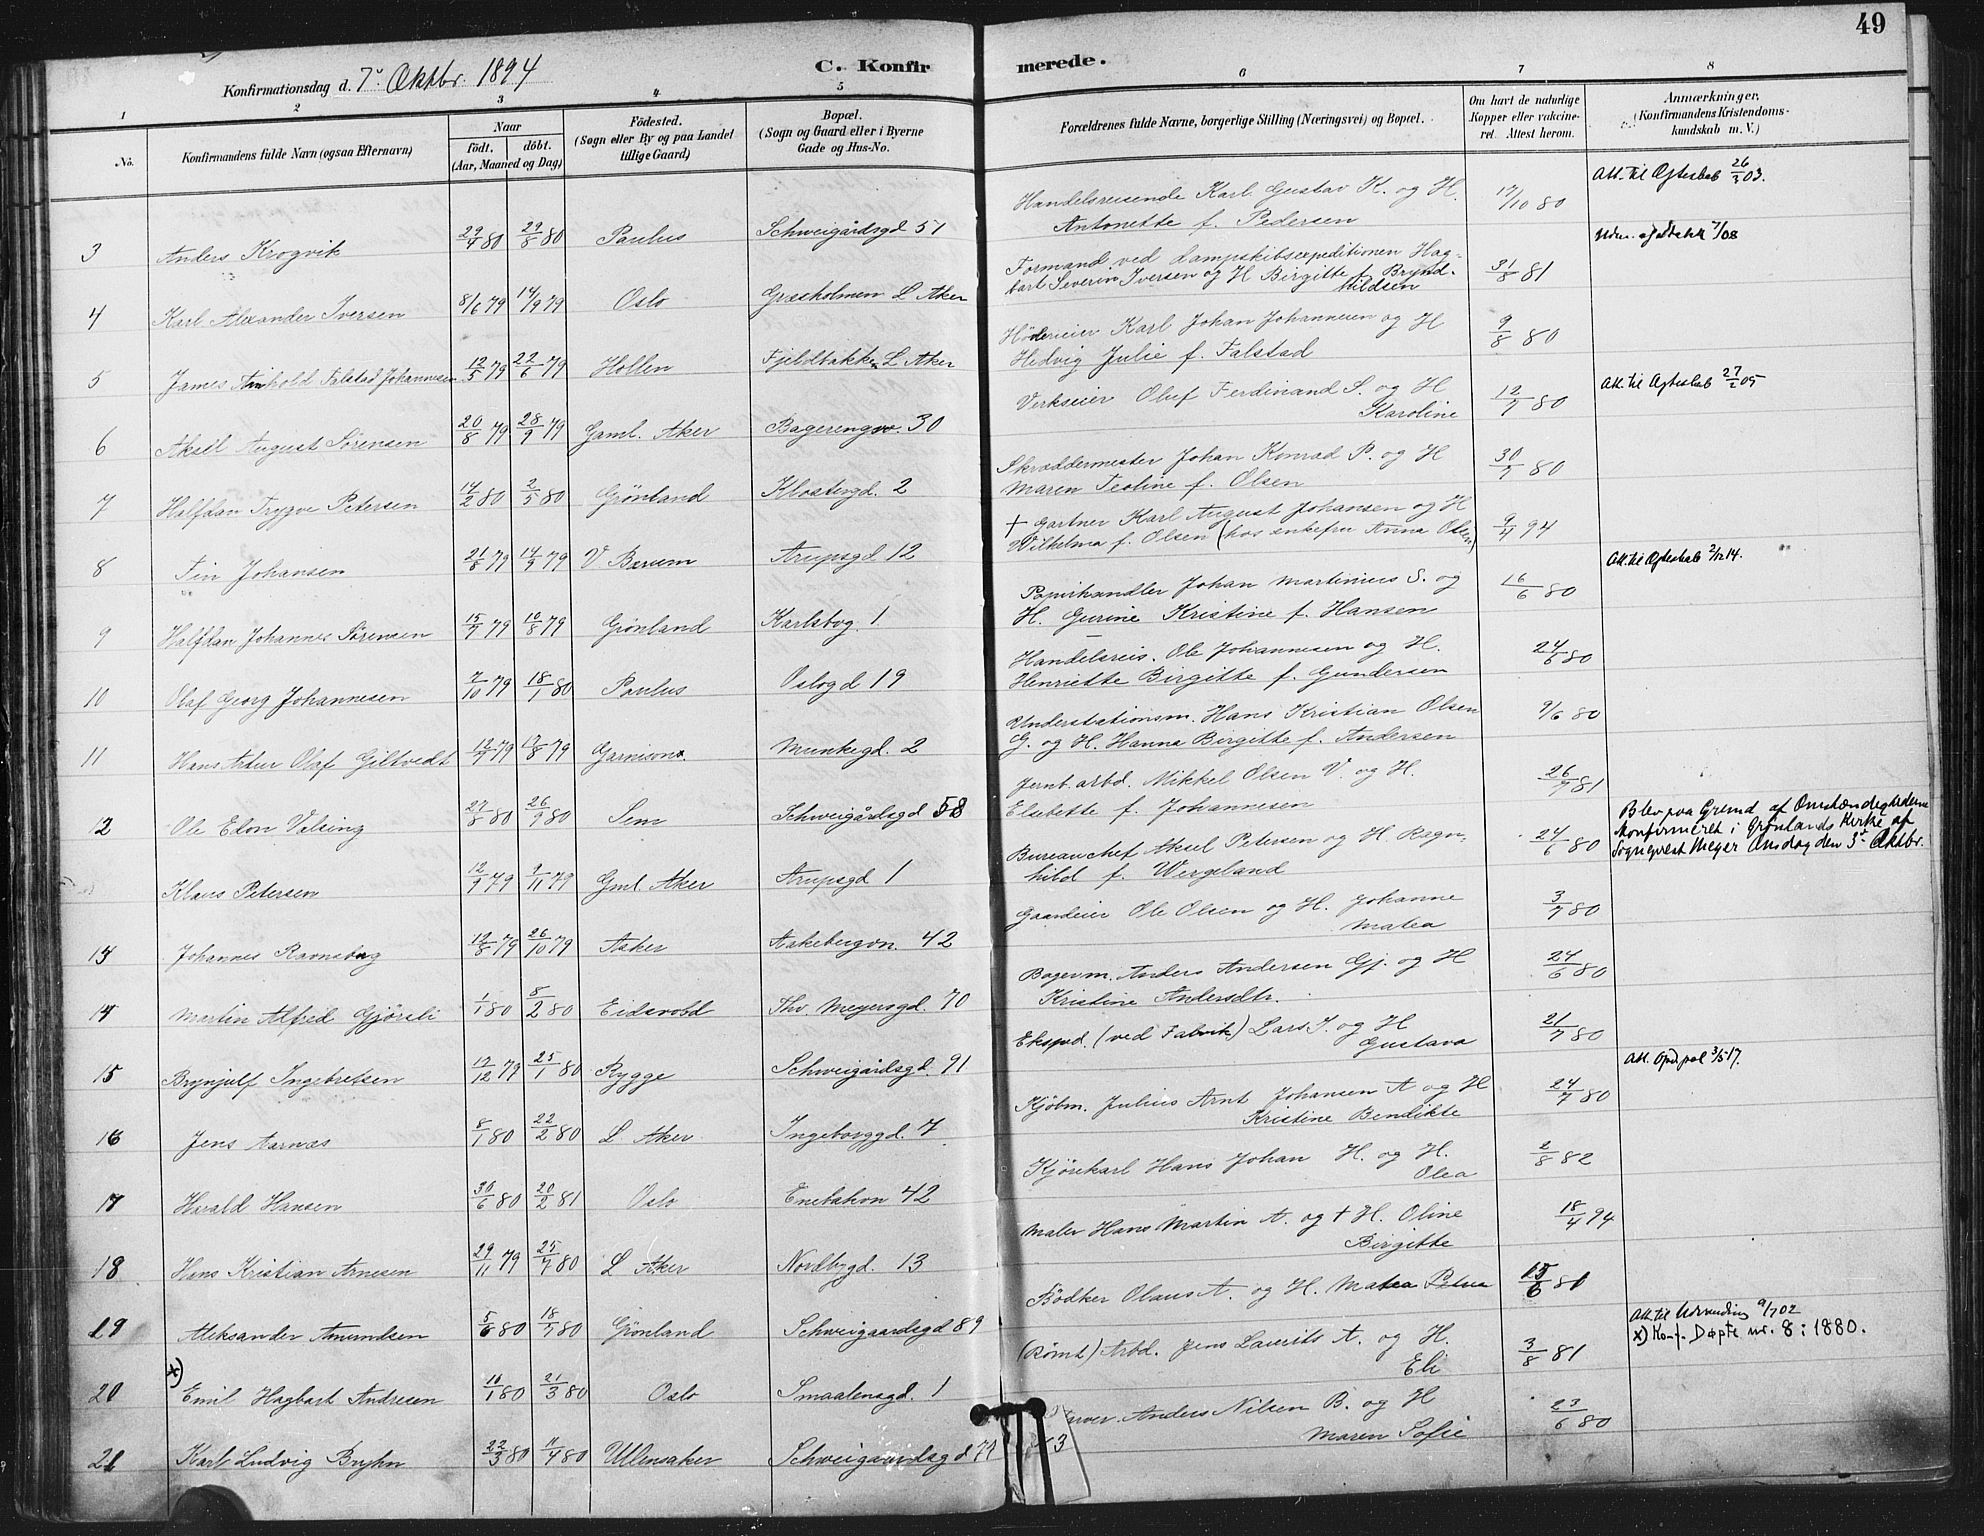 49
Konfirmationsdag d. 7de Oktbr. 1894
C. Konfirmerede.
1 2 3 4 5 6 7 8
No.
Konfirmandens fulde Navn (ogsaa Efternavn)
Naar
födt. döbt.
(Aar, Maaned og Dag)
Födested.
(Sogn eller By og paa Landet
tillige Gaard)
Bopæl.
(Sogn og Gaard eller i Byerne
Gade og Hus-No.
Forældrenes fulde Navne, borgerlige Stilling (Næringsvei) og Bopæl.
Om havt de naturlige
Kopper eller vakcine-
ret. Attest herom.
Anmærkninger,
(Konfirmandens Kristendoms-
kundskab m. V.)
3 Anders Krogvik 29/7 80 29/8 80 Paulus Schweigårdsgd 51
Handelsreisende Karl Gustav K. og H. 17/10 80 Att. til Ægteskab 26/3 03.
Antonette f. Pedersen
4 Karl Alexander Iversen 8/6 79 14/9 79 Oslo Græsholmen L Aker
Formand ved Dampskibsexpeditionen Hag- 31/8 81 7/08
bart Severin Iversen og H Birgitte f. Brynd-
hildsen
5 James Arnhold Falstad Johannesen 12/5 79 22/6 79 Hollen Fjeldbakken L Aker
Karl Johan Johannesen og H 9/8 80
Hedvig Julie f. Falstad
6 Aksel August Sörensen 20/8 79 28/9 79 Gaml. Aker Bagerengv. 30
Verkseier Oluf Ferdinand S. og H 12/7 80 Att. til Ægteskab 27/2 05
Karoline
7 Halfdan Trygve Petersen 14/2 80 2/5 80 Grönland Klostergd. 2
Skræddermester Johan Konrad P. og H 30/7 80
Maren Teoline f. Olsen
8 Fin Johansen 21/8 79 14/9 79 V Bærum Arupsgd 12
+ Gartner Karl August Johansen og H 9/4 94
Wilhelma f. Olsen (hos enkefru Anna Olsen)
9 Halfdan Johannes Sörensen 15/7 79 10/8 79 Grönland Karlsbog. 1
Papirhandler Johan Martinius S. og 16/6 80 Att. til Ægteskab 2/12 14.
H. Gurine Kristine f. Hansen
10 Olaf Georg Johannesen 7/10 79 18/1 80 Paulus Oslogd 19
Handelsreis. Ole Johannesen og H. 24/6 80
Henriette Birgitte f. Gundersen
11 Hans Artur Olaf Giltvedt 12/7 79 17/8 79 Garnison Munkegd. 2
Understationsm. Hans Kristian Olsen 9/6 80
G. og H. Hanna Birgitte f. Andersen
12 Ole Edon Valsing 27/8 80 26/9 80 Sem Schweigårdsgd 58
Jernb. arbd. Mikkel Olsen V. og H. 26/7 81
Elsebette f. Johannesen
Klaus Petersen 12/9 79 9/11 79 Gml. Aker Arupsgd 1
Bureauchef Aksel Petersen og H. Ragn- 24/6 80
hild f. Wergeland
Blev paa Grund af Omstændighederne
konfirmeret i Grönlands Kirke af
Sogneprest Meyer Onsdag den 3die Oktbr.
13 Johannes Ravnsborg 12/8 79 26/10 79 Asker Aakebergvn. 42
Gaardeier Ole Olsen og H. Johanne 3/7 80
Matea
14 Martin Alfred Gjörsli 1/1 80 8/2 80 Eidsvold Thv. Meyersgd. 70
Bagerm. Anders Andersen Gj. og H 24/6 80
Kristine Andersdtr.
15 Brynjulf Ingebretsen 12/12 79 25/1 80 Rygge Schweigårdsgd. 91
Ekspd. (ved Fabrik) Lars I. og H 21/7 80
Gustava
16 Jens Aarnæs 8/1 80 22/2 80 L Aker Ingeborggd. 7
Kjöbm. Julius Arnt Johansen A og H 24/7 80 Att. 3/5 17.
Kristine Bendikte
17 Harald Hansen 30/6 80 20/2 81 Oslo Enebakvn 42
Kjörekarl Hans Johan H. og H. 2/8 82
Olea
18 Hans Kristian Arnesen 29/11 79 25/7 80 L Aker Nordbygd. 13
Maler Hans Martin A. og + H. Oline 18/4 94
Birgitte
19 Aleksander Amundsen 5/6 80 18/7 80 Grönland Schweigaardsgd 89
Bödker Olaus A. og H. Matea Petrea 15/6 81
20 x) Emil Hagbart Andresen 16/1 80 21/3 80 Oslo Smaalensgd. 1
(Römt) Arbd. Jens Laurits A. og H. 3/8 81
Eli
Att. til Udvandring 9/7 02
x) Konf. Döpte nr. 8 i 1880.
21 Karl Ludvig Bryhn 22/3 80 11/4 80 Ullensaker Schweigaardsgd 71
Anders Nilsen B. og H 23/6 80
Maren Sofie